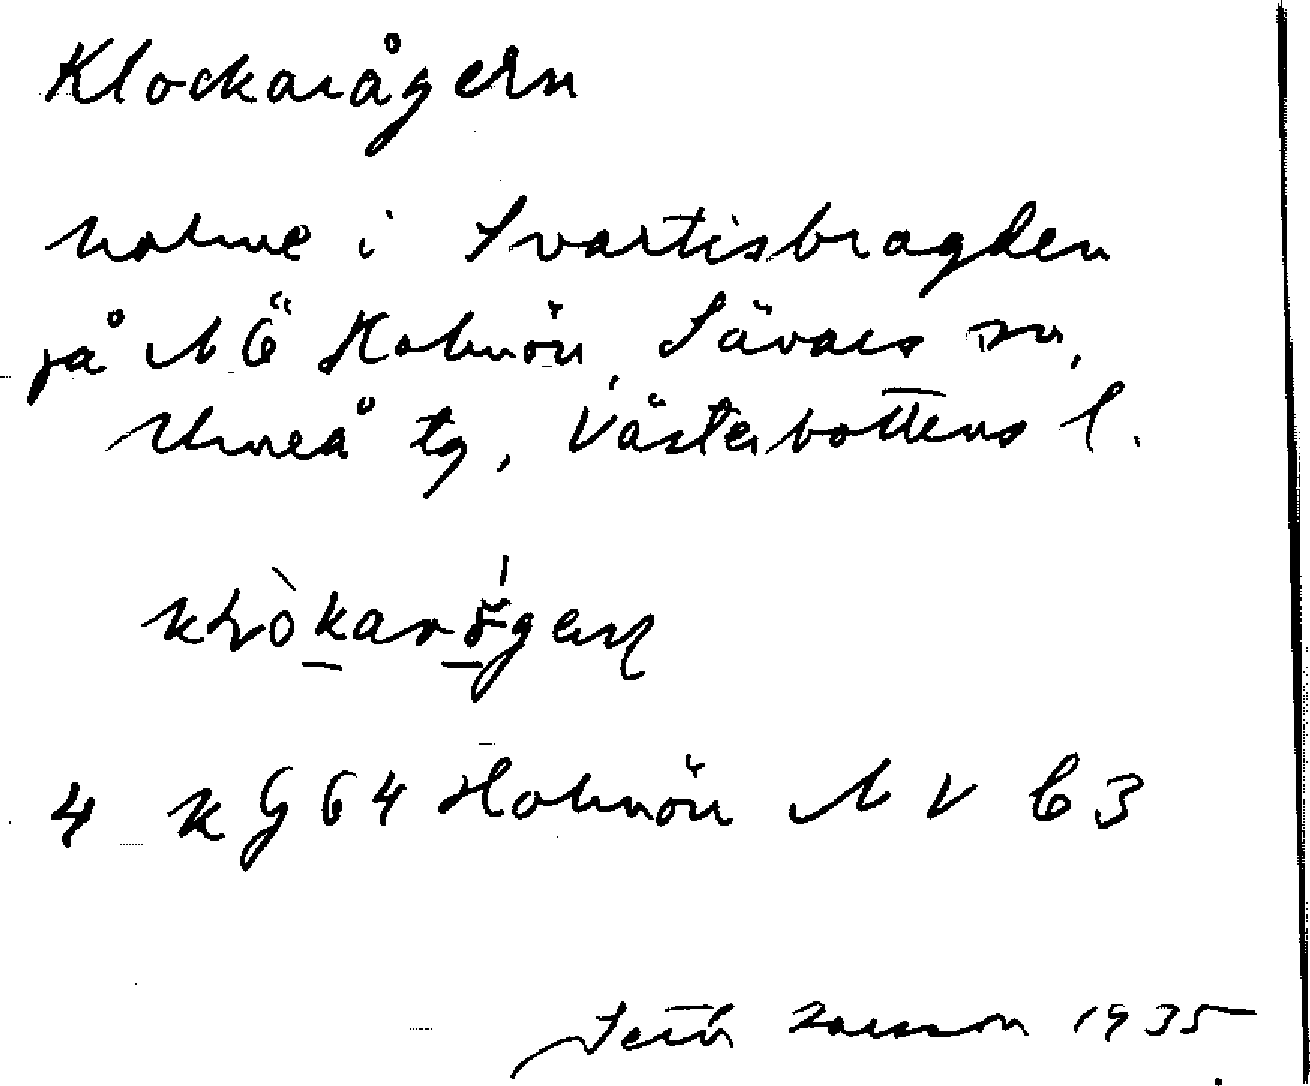 Klockarågern
holme i Svartisbragden
på NÖ Holmön, Sävars sn,
Umeå tg, Västerbottens l.
4 K G 64 Holmön NV C3
Larsson 1935